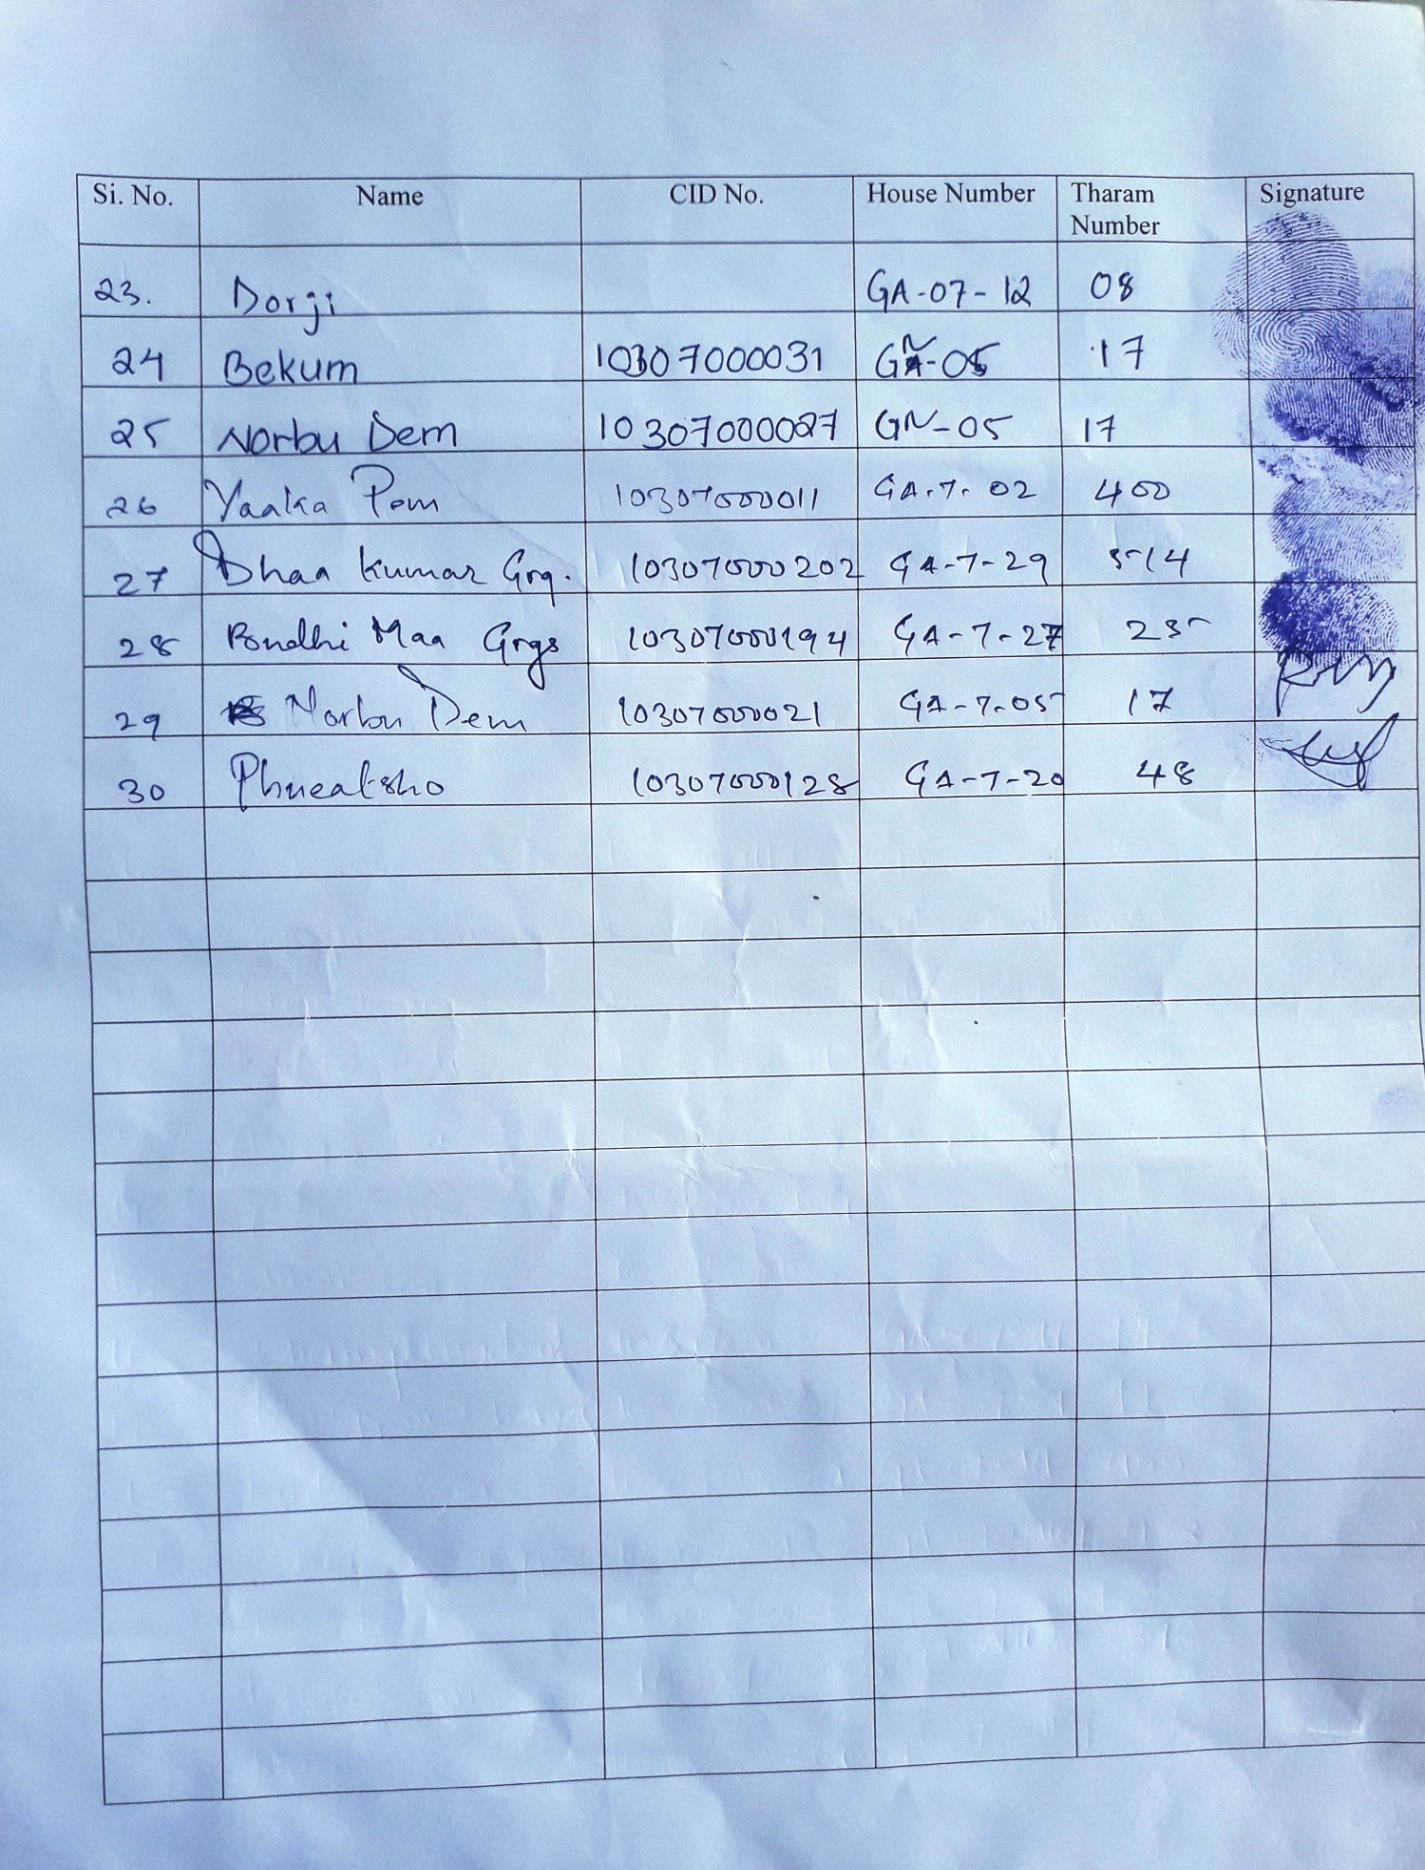 Si. No. Name CID No. House Number Tharam Number Signature
23. Dorji GA-07-12 08
24 Bekum 10307000031 GN-05 17
25 Norbu Dem 10307000027 GN-05 17
26 Yaaka Pem 10307000011 GA.7.02 400
27 Dhaa Kumar Grg. 10307000202 GA-7-29 514
28 Maa 10307000194 GA-7-27 235
29 Norbu Dem 10307000021 GA-7-05 17
30 10307000128 GA-7-20 48